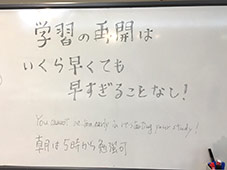 学習の再開は
いくら早くても
早すぎることなし!
You cannot be too early in restarting your study!
朝は5時から勉強可